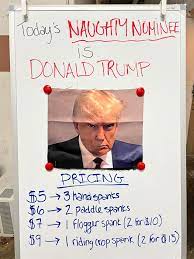 Today's NAUGHTY NOMINEE
IS
DONALD TRUMP
PRICING
$5 → 3 handspanks
$6 → 2 paddle spanks
$7 → 1 flogger spank (2 for $10)
$9 → 1 riding crop spank (2 for $15)